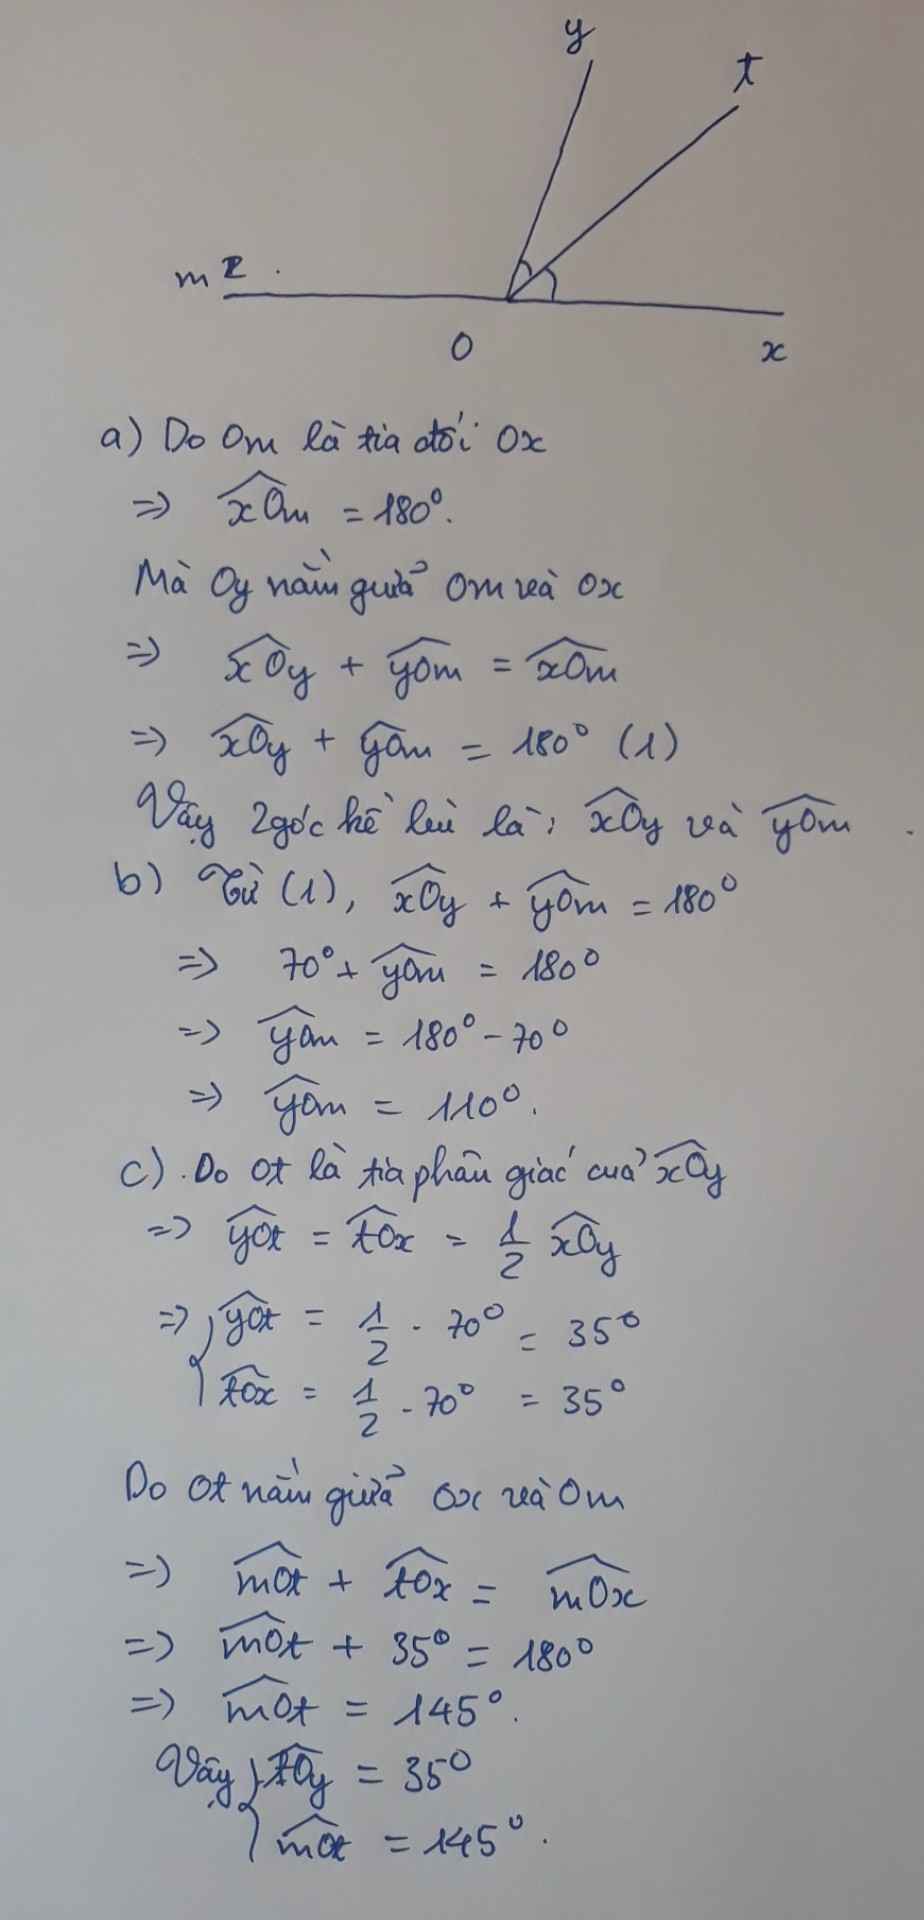 y
t
m z
O
x
a) Do Om là tia đối Ox
=> \widehat{xOm} = 180°.
Mà Oy nằm giữa Om và Ox
=> \widehat{xOy} + \widehat{yOm} = \widehat{xOm}
=> \widehat{xOy} + \widehat{yOm} = 180° (1)
Vậy 2 góc kề bù là: \widehat{xOy} và \widehat{yOm}
b) Từ (1), \widehat{xOy} + \widehat{yOm} = 180°
=> 70° + \widehat{yOm} = 180°
=> \widehat{yOm} = 180° - 70°
=> \widehat{yOm} = 110°.
c) Do Ot là tia phân giác của \widehat{xOy}
=> \widehat{yOt} = \widehat{tOx} = \frac{1}{2} \widehat{xOy}
=> { \widehat{yOt} = \frac{1}{2} . 70° = 35°
\widehat{tOx} = \frac{1}{2} . 70° = 35°
Do Ot nằm giữa Ox và Om
=> \widehat{mOt} + \widehat{tOx} = \widehat{mOx}
=> \widehat{mOt} + 35° = 180°
=> \widehat{mOt} = 145°.
Vậy { \widehat{tOy} = 35°
\widehat{mOt} = 145°.